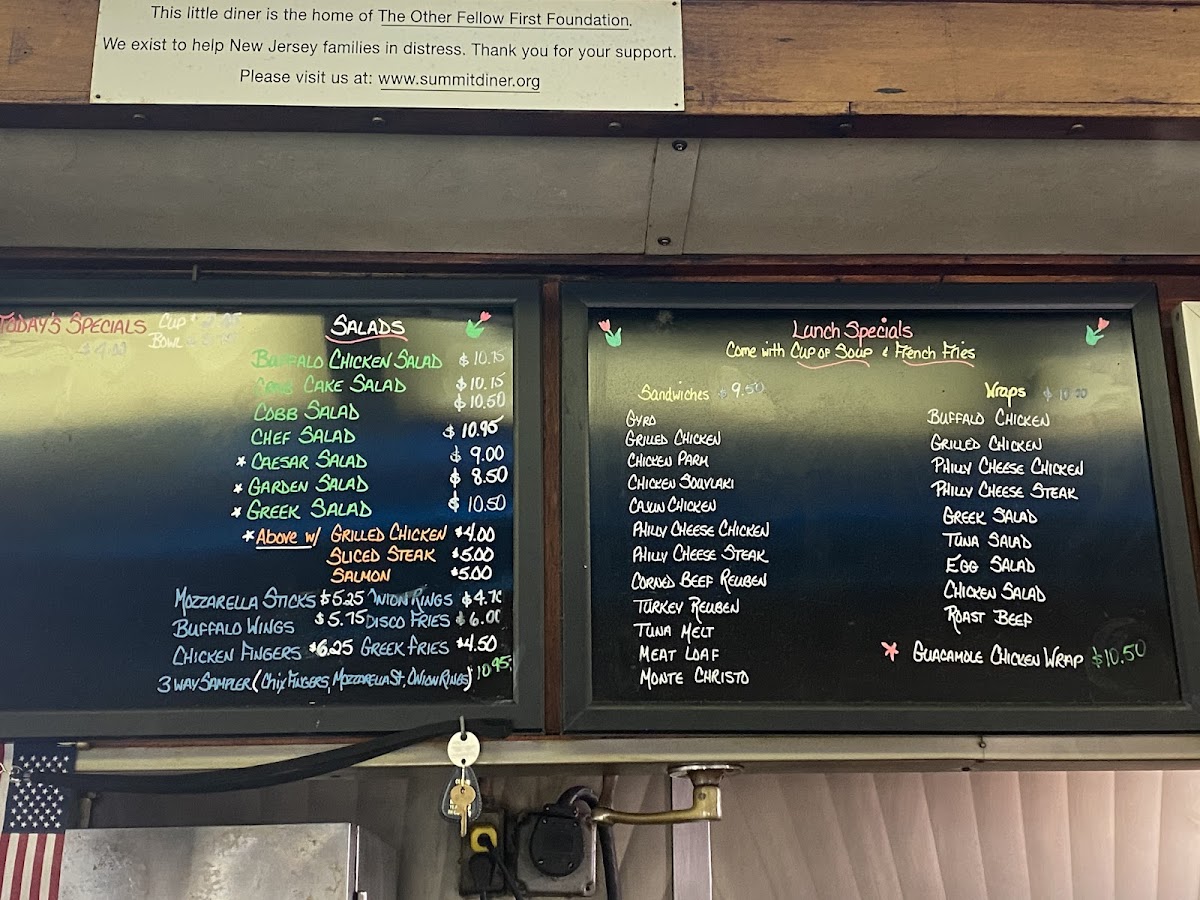 This little diner is the home of The Other Fellow First Foundation.
We exist to help New Jersey families in distress. Thank you for your support.
Please visit us at: www.summitdiner.org
TODAY'S SPECIALS
CUP
BOWL
SALADS
BUFFALO CHICKEN SALAD $10.75
CAKE SALAD $10.75
COBB SALAD $10.50
CHEF SALAD $10.95
* CAESAR SALAD $9.00
* GARDEN SALAD $8.50
* GREEK SALAD $10.50
* Above w/ GRILLED CHICKEN $4.00
SLICED STEAK $5.00
SALMON $5.00
MOZZARELLA STICKS $5.25 ONION RINGS
BUFFALO WINGS $5.75 DISCO FRIES $6.00
CHICKEN FINGERS $6.25 GREEK FRIES $4.50
3 WAY SAMPLER (CHIX FINGERS, MOZZARELLA ST, ONION RINGS) 10.95
Lunch Specials
Come with CUP OF SOUP & French Fries
Sandwiches $9.50
GYRO
GRILLED CHICKEN
CHICKEN PARM
CHICKEN SOUVLAKI
CAJUN CHICKEN
PHILLY CHEESE CHICKEN
PHILLY CHEESE STEAK
CORNED BEEF REUBEN
TURKEY REUBEN
TUNA MELT
MEAT LOAF
MONTE CHRISTO
Wraps
BUFFALO CHICKEN
GRILLED CHICKEN
PHILLY CHEESE CHICKEN
PHILLY CHEESE STEAK
GREEK SALAD
TUNA SALAD
EGG SALAD
CHICKEN SALAD
ROAST BEEF
* GUACAMOLE CHICKEN WRAP $10.50